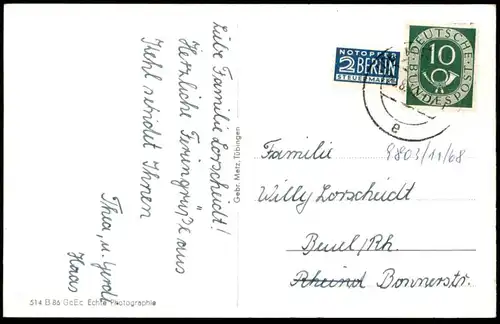 Liebe Familie Lorscheidt!
Herzliche Feriengrüße aus
Kehl sendet Ihnen
Thea, u. Gerda
Haas
514 B 86 GeEc Echte Photographie
Gebr. Metz, Tübingen
NOTOPFER
2 BERLIN
STEUERMARKE
DEUTSCHE
10
BUNDESPOST
e
Familie
9803/11/68
Willy Lorscheidt
Beuel/Rh.
Rheind Bonnerstr.